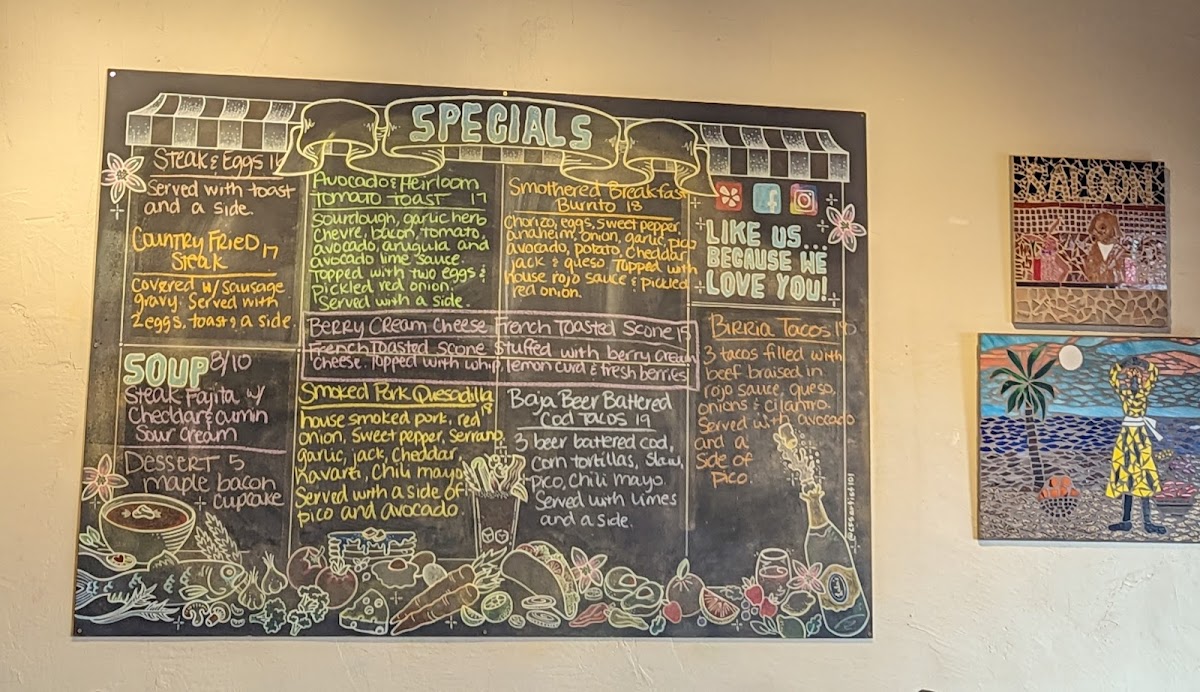 SPECIALS
STEAK & EGGS
Served with toast
and a side.
COUNTRY FRIED 17
STEAK
covered w/ sausage
gravy. Served with
2 eggs, toast & a side
SOUP 8/10
Steak Fajita w/
Cheddar & cumin
Sour cream
DESSERT 5
maple bacon
cupcake
Avocado & Heirloom
Tomato Toast 17
sourdough, garlic herb
chevre, bacon, tomato
avocado, arugula and
avocado lime sauce.
Topped with two eggs &
pickled red onion.
Served with a side.
Smothered Breakfast
Burrito 18
Chorizo, eggs, sweet pepper,
anaheim, onion, garlic, pico
avocado, potato, cheddar,
jack & queso Topped with
house rojo sauce & pickled
red onion.
BERRY CREAM CHEESE French Toasted Scone 15
French Toasted Scone Stuffed with berry cream
cheese. Topped with whip, lemon curd & fresh berries
Smoked Pork Quesadilla
18
house smoked pork, red
onion, sweet pepper, Serrano,
garlic, jack, Cheddar,
havarti, Chili mayo
Served with a side of
pico and avocado
Baja Beer Battered
Cod Tacos 19
3 beer battered cod,
corn tortillas, slaw,
pico, chili mayo.
Served with limes
and a side.
LIKE US...
BECAUSE WE
LOVE YOU!
BIRRIA TACOS
3 tacos filled with
beef braised in
rojo sauce, queso,
onions & cilantro.
Served with avocado
and a
side of
pico.
SALOON